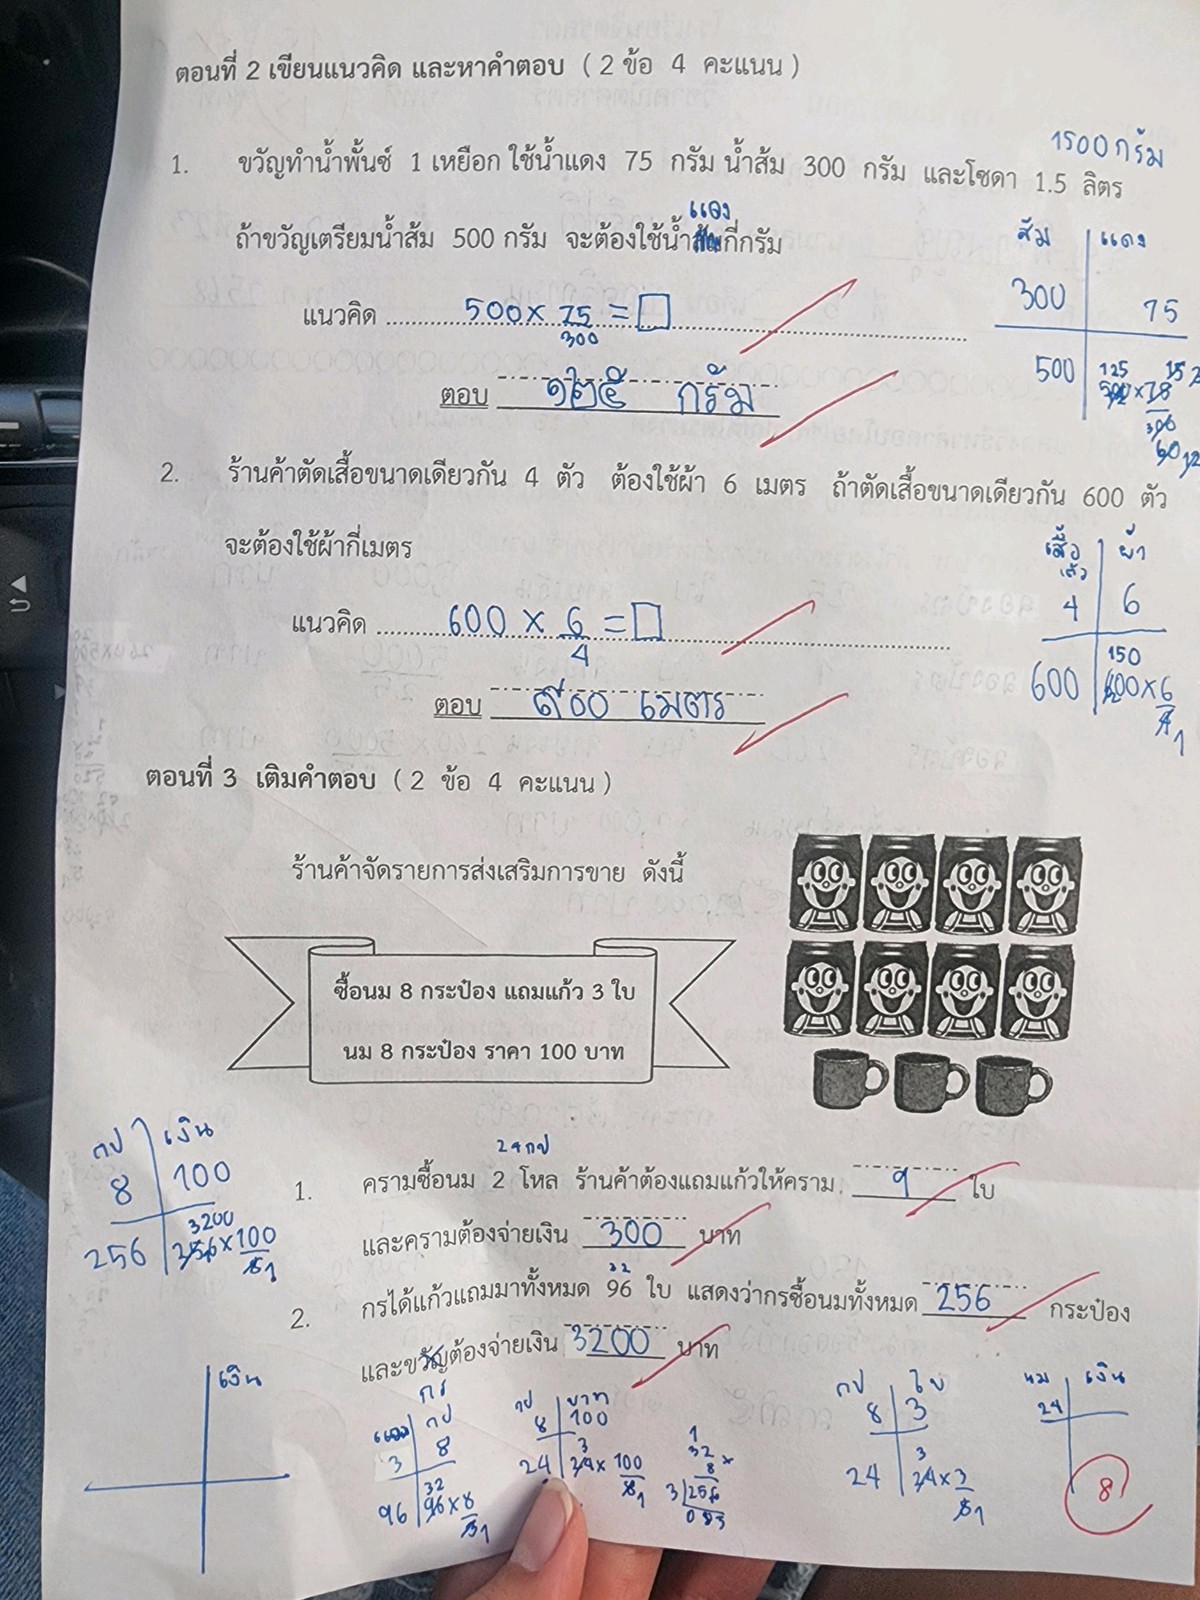 ตอนที่ 2 เขียนแนวคิด และหาคำตอบ ( 2 ข้อ 4 คะแนน )
1500 กรัม
1. ขวัญทำน้ำพั้นช์ 1 เหยือก ใช้น้ำแดง 75 กรัม น้ำส้ม 300 กรัม และโซดา 1.5 ลิตร
แดง
ถ้าขวัญเตรียมน้ำส้ม 500 กรัม จะต้องใช้น้ำส้มกี่กรัม
ส้ม แดง
300 75
แนวคิด 500 × 75/300 = □
500
ตอบ ๑๒๕ กรัม
2. ร้านค้าตัดเสื้อขนาดเดียวกัน 4 ตัว ต้องใช้ผ้า 6 เมตร ถ้าตัดเสื้อขนาดเดียวกัน 600 ตัว
จะต้องใช้ผ้ากี่เมตร
เสื้อ ผ้า
4 6
แนวคิด 600 × 6/4 = □
150
600 600 × 6/4 1
ตอบ ๙๐๐ เมตร
ตอนที่ 3 เติมคำตอบ ( 2 ข้อ 4 คะแนน )
ร้านค้าจัดรายการส่งเสริมการขาย ดังนี้
ซื้อนม 8 กระป๋อง แถมแก้ว 3 ใบ
นม 8 กระป๋อง ราคา 100 บาท
กป เงิน
8 100
3200
256 256 × 100/8 1
24 กป
1. ครามซื้อนม 2 โหล ร้านค้าต้องแถมแก้วให้คราม 9 ใบ
และครามต้องจ่ายเงิน 300 บาท
32
2. กรได้แก้วแถมมาทั้งหมด 96 ใบ แสดงว่ากรซื้อนมทั้งหมด 256 กระป๋อง
และขวัญต้องจ่ายเงิน 3200 บาท
กร
เงิน
แถม กป
3 8
32
96 96 × 8/3 1
กป บาท
8 100
3
24 24 × 100/8 1
1
32
8 ×
3 256
กป ใบ
8 3
3
24 24 × 3/8 1
นม เงิน
24
8